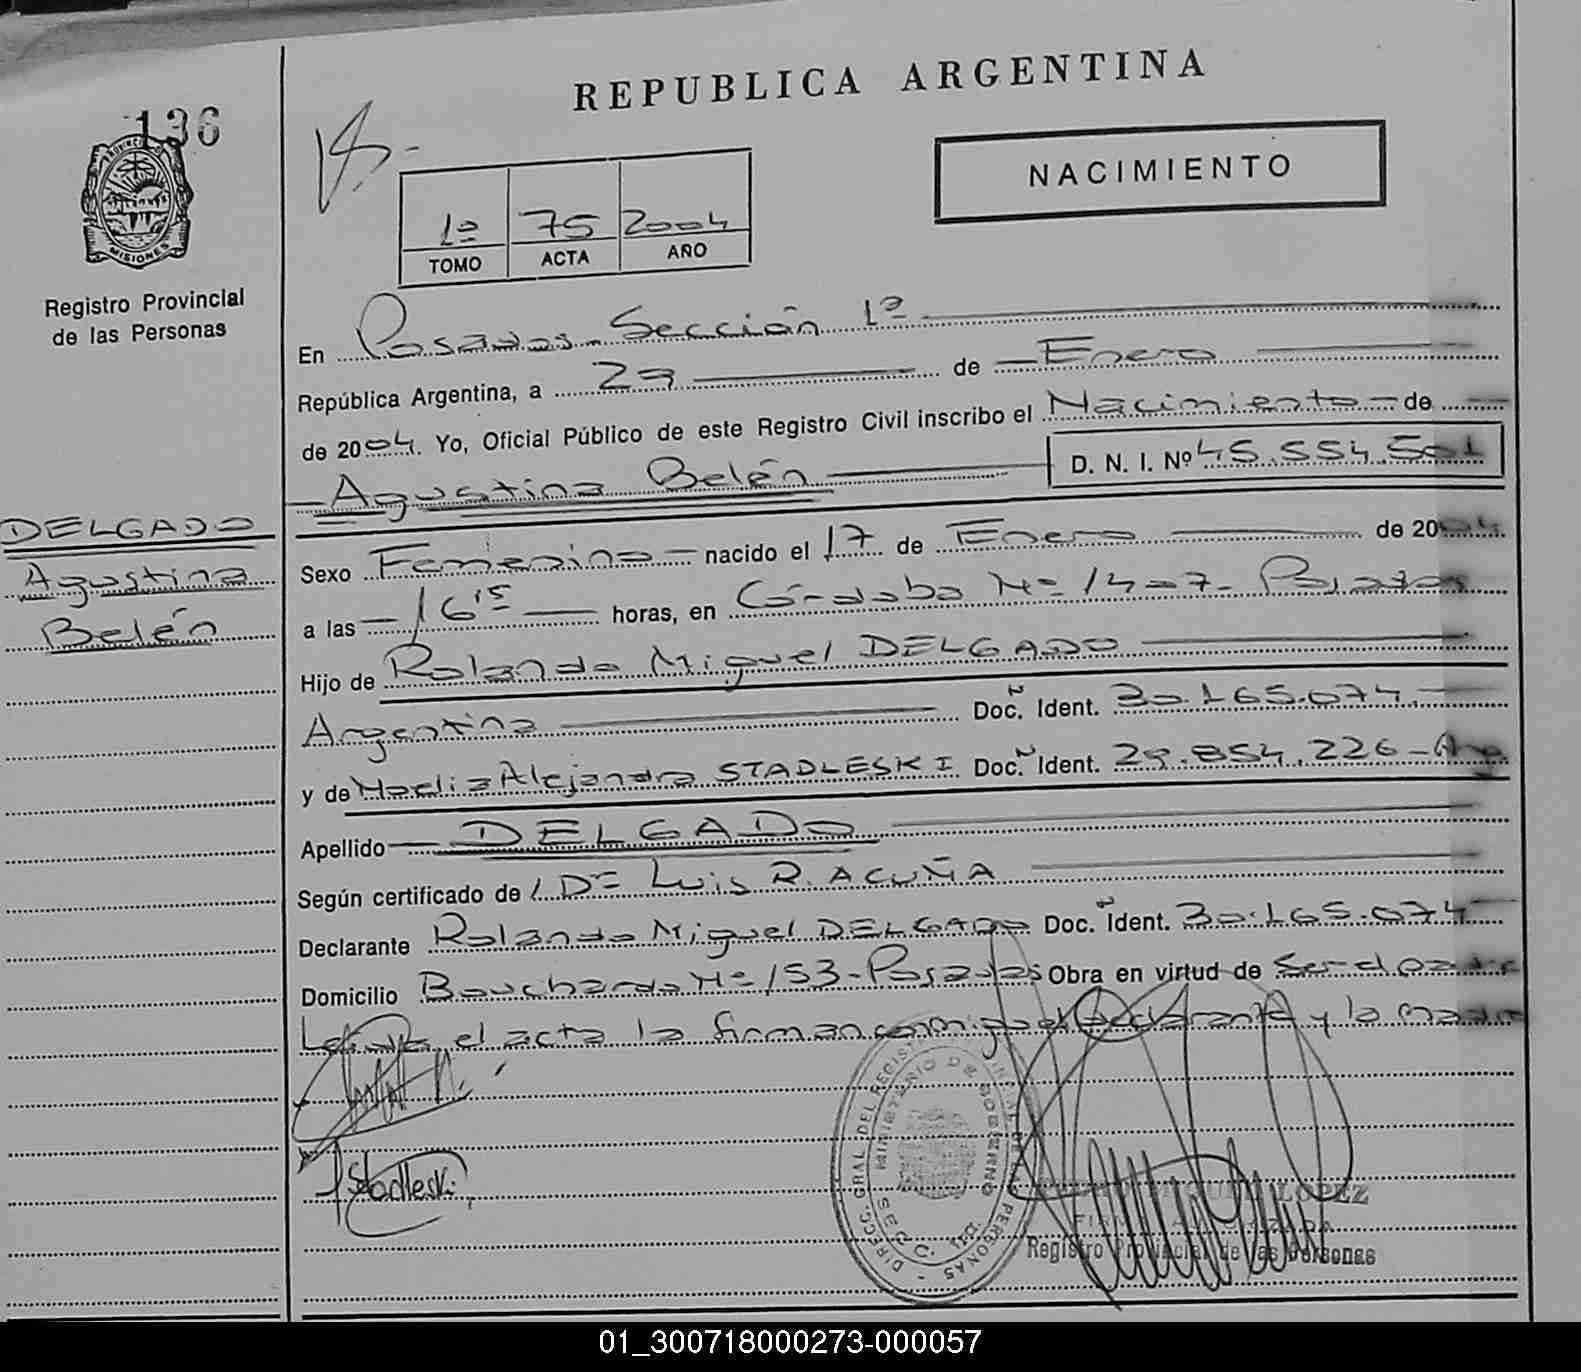 136
PROVINCIA DE
MISIONES
Registro Provincial
de las Personas
DELGADO
Agustina
Belén
REPUBLICA ARGENTINA
NACIMIENTO
1º 75 2004
TOMO ACTA AÑO
En Posadas Sección 1ª
República Argentina, a 29 de Enero
de 2004. Yo, Oficial Público de este Registro Civil inscribo el Nacimiento de
Agustina Belén D. N. I. Nº 45.554.501
Sexo Femenino nacido el 17 de Enero de 2004.
a las 16 15 horas, en Córdoba Nº 1407- Posadas
Hijo de Rolando Miguel DELGADO
Argentina Doc. Ident. 30.165.074.
y de Alejandra STADLESKI Doc. Ident. 29.854.226 - Arg.
Apellido DELGADO
Según certificado de Dr Luis R. ACUÑA
Declarante Rolando Miguel DELGADO Doc. Ident. 30.165.074
Domicilio Bouchardo Nº 153-Posadas Obra en virtud de Ser el padre
Leída el acta la firman conmigo el declarante y la madre
Stadleski
DIRECC. GRAL. DEL REGIST. PROVINCIAL DE LAS PERSONAS
MINISTERIO DE GOBIERNO
LOPEZ
FIRMA AUTORIZADA
Registro Provincial de las Personas
01_300718000273-000057